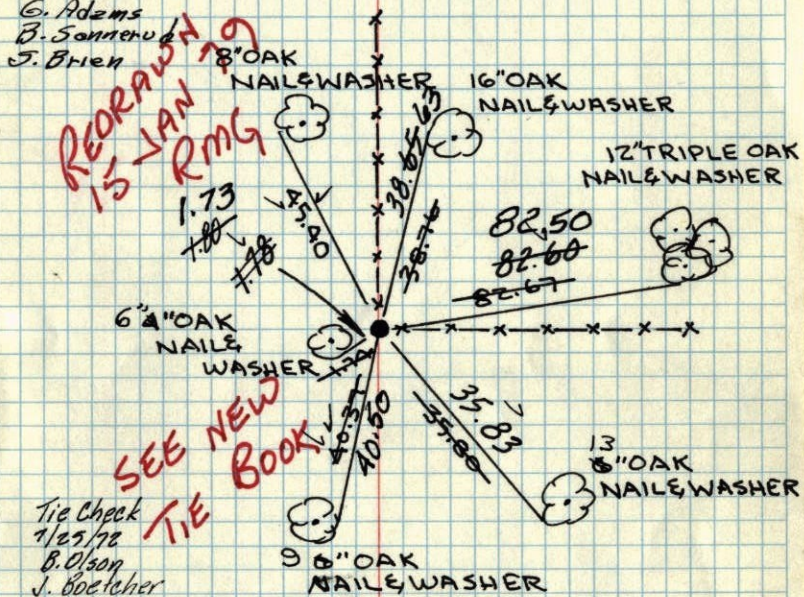 G. Adams
B. Sonnerud
J. Brien
REDRAWN
15 JAN 79
RMG
8" OAK
NAIL & WASHER
16" OAK
NAIL & WASHER
12" TRIPLE OAK
NAIL & WASHER
1.73
1.80
1.78
45.40
38.63
38.65
38.76
82.50
82.60
82.67
6" 4" OAK
NAIL &
WASHER
1.74
40.37
40.50
35.83
35.80
13
OAK
NAIL & WASHER
SEE NEW
TIE BOOK
Tie Check
7/25/72
B. Olson
J. Boetcher
9 6" OAK
NAIL & WASHER